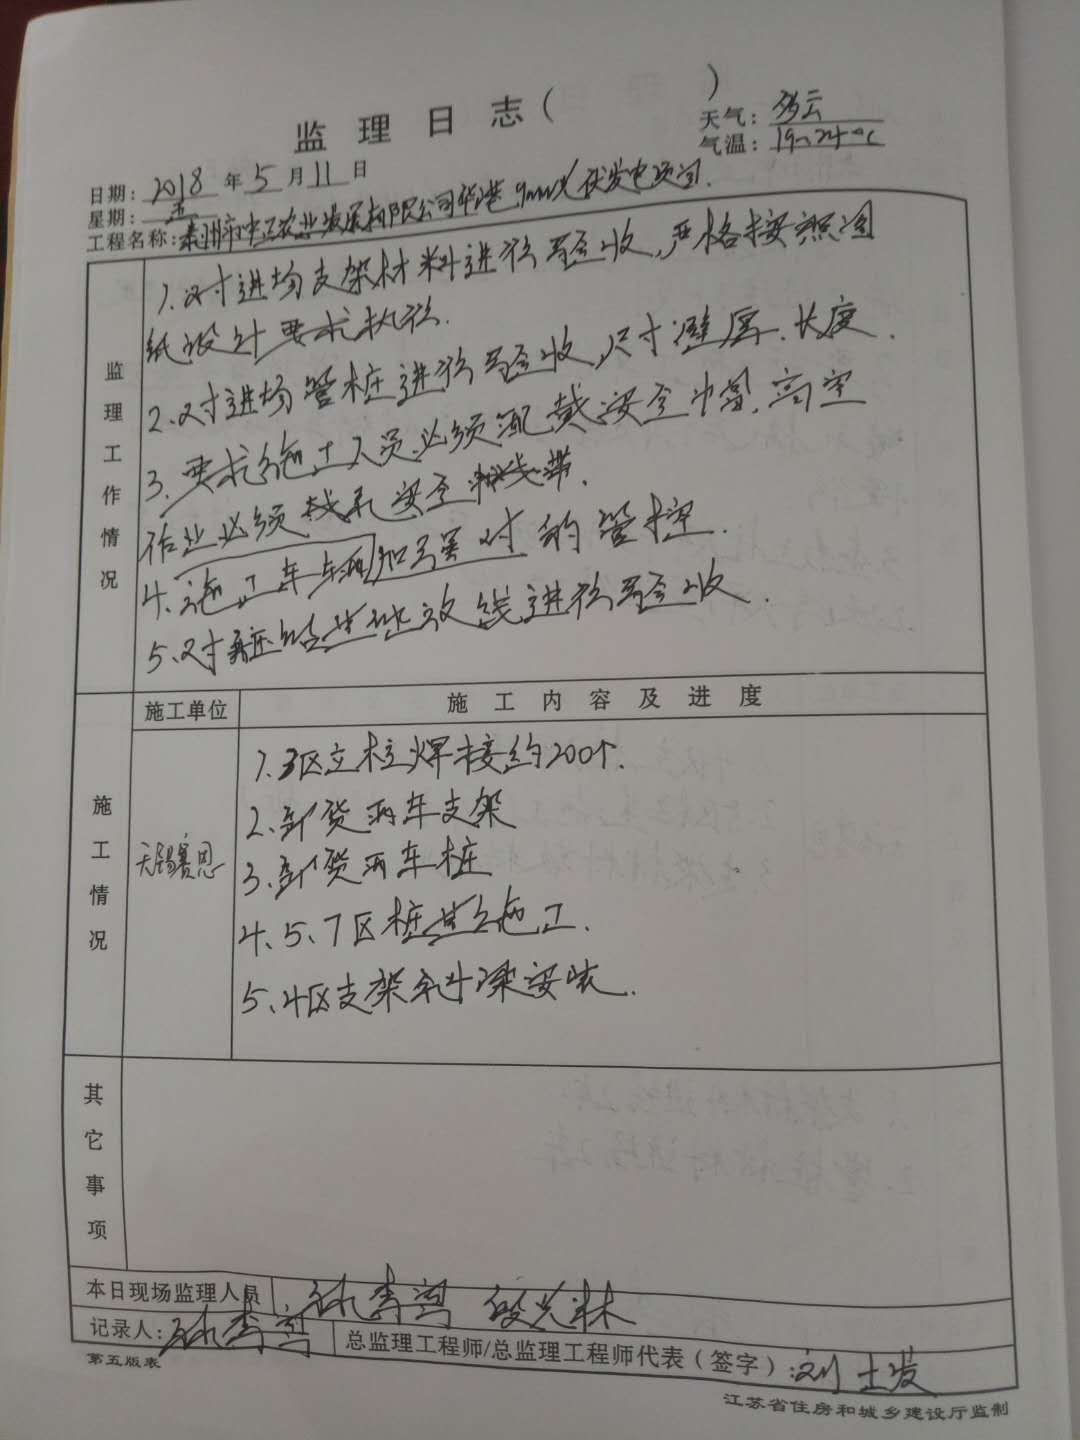 监理日志( )
天气: 多云
气温: 19~24℃
日期: 2018年5月11日
星期: 五
工程名称: 泰州市中农业发展有限公司华港9mw光伏发电项目.
监理工作情况
1.对进场支架材料进行验收,严格按照图
纸设计要求执行.
2.对进场管桩进行验收,尺寸、壁厚、长度.
3.要求施工人员必须配戴安全帽,高空
作业必须栓系安全带.
4.施工车辆的管控.
5.对桩基放线进行验收.
施工情况
施工单位
施工内容及进度
无锡赛恩
1.3区立柱焊接约200个.
2.卸货两车支架
3.卸货两车桩
4、5、7区桩基施工.
5、4区支架斜梁安装.
其它事项
本日现场监理人员
记录人:
总监理工程师/总监理工程师代表(签字):刘士发
第五版表
江苏省住房和城乡建设厅监制